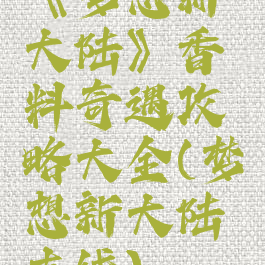 《梦想新
大陆》香
料奇遇攻
略大全(梦
想新大陆